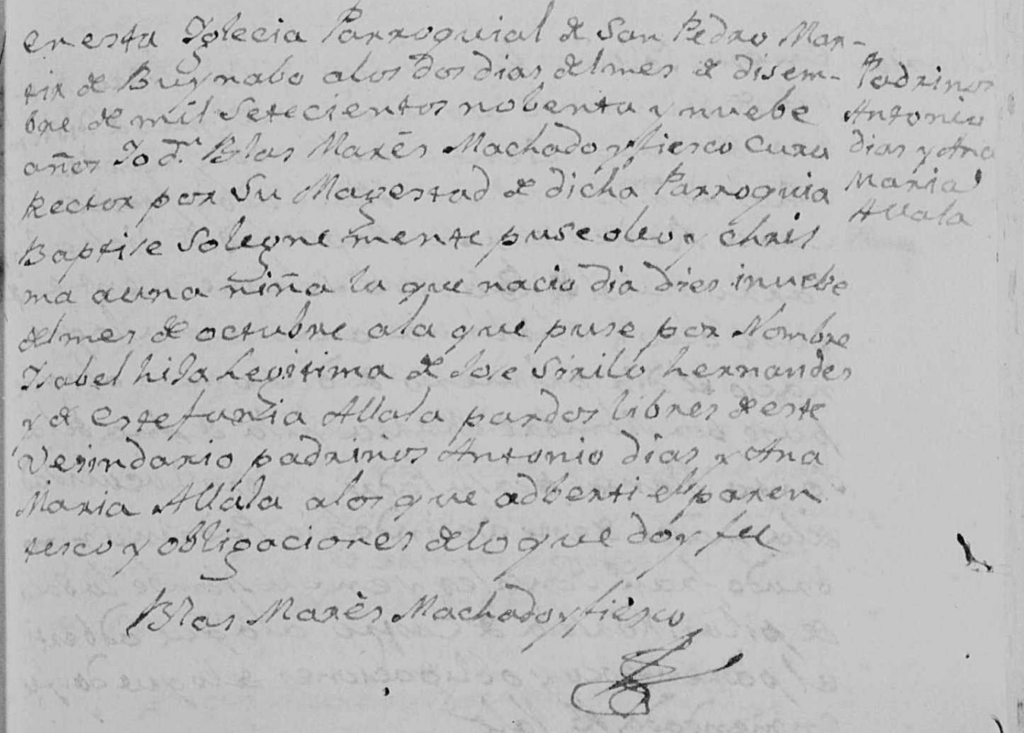 en esta Yglecia Parroquial de San Pedro Mar-
tir de Buynabo alos dos dias del mes de disem-
bre de mil setecientos nobenta y nuebe
años Yo dn. Blas Marès Machado y fiesco Cura
Rector por Su Magestad de dicha Parroquia
Baptise Solegne mente puse oleo y chris
ma auna niña la que nacio dia dies inuebe
del mes de octubre ala que puse por Nombre
Isabel hija legitima de Jose Sirilo hernandes
y de estefania Allala pardos libres de este
Vesindario padrinos Antonio dias y Ana
Maria Allala alos que adberti el paren
tesco y obligaciones delo que doy fee
Blas Marès Machado y fiesco
Padrinos
Antonio
dias y Ana
Maria
Allala